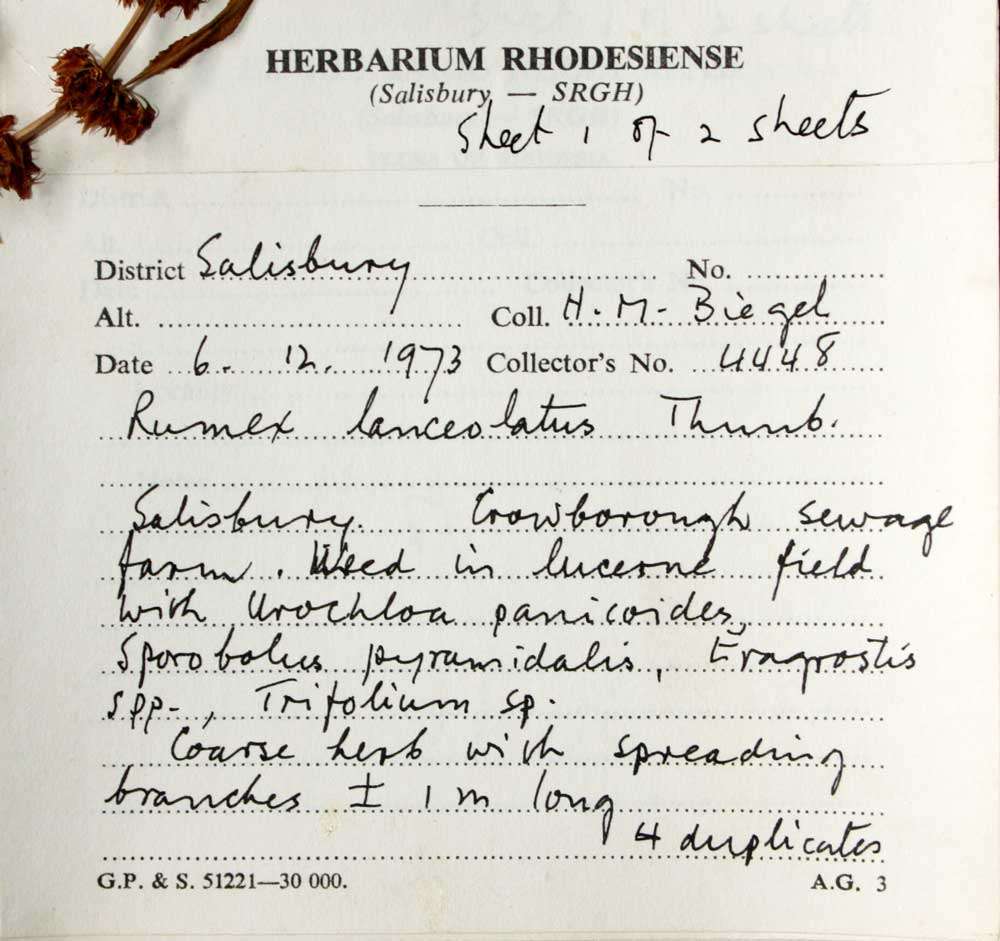 HERBARIUM RHODESIENSE
(Salisbury — SRGH)
Sheet 1 of 2 sheets
District Salisbury No.
Alt. Coll. H. M. Biegel
Date 6. 12. 1973 Collector's No. 4448
Rumex lanceolatus Thunb.
Salisbury. Crowborough sewage
farm. Weed in lucerne field
with Urochloa panicoides,
Sporobolus pyramidalis, Eragrostis
spp., Trifolium sp.
Coarse herb with spreading
branches ± 1 m long
4 duplicates
G.P. & S. 51221—30 000. A.G. 3